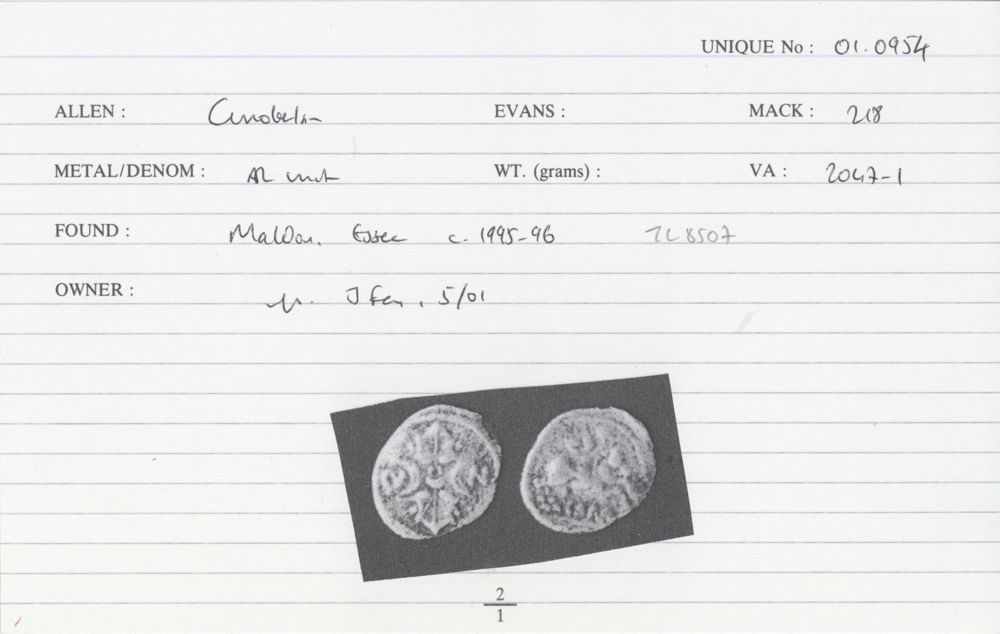 UNIQUE No : 01.0954
ALLEN : Cunobelin EVANS : MACK : 218
METAL/DENOM : AR unit WT. (grams) : VA : 2047-1
FOUND : Maldon, Essex c. 1995-96 TL 8507
OWNER : 5/01
2
1